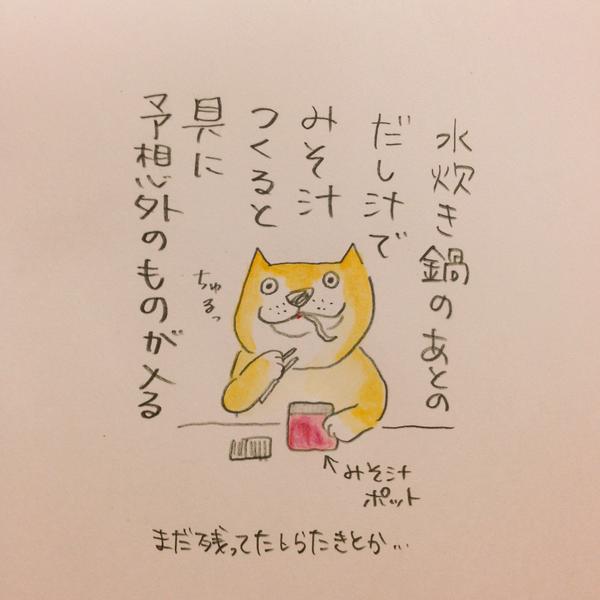 水炊き鍋のあとの
だし汁で
みそ汁
つくると
具に
予想外のものが入る
ちゅるっ
みそ汁
ポット
まだ残ってたしらたきとか…